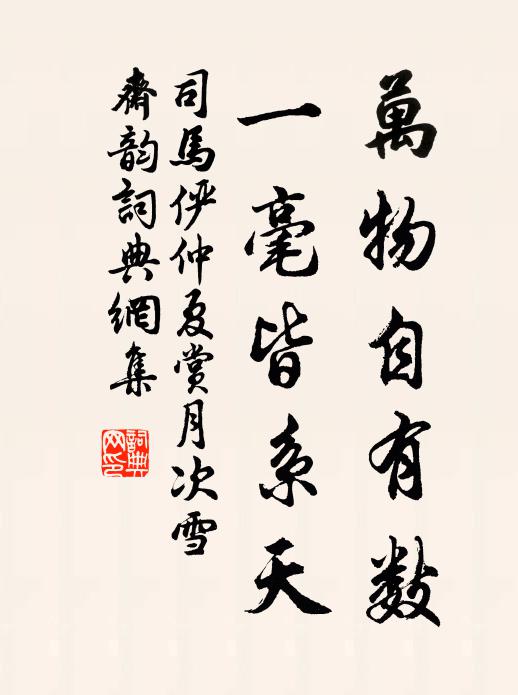 萬物自有数
一毫皆系天
司馬俨仲夏賞月次雪
齋韵詞典網集
詞典網印